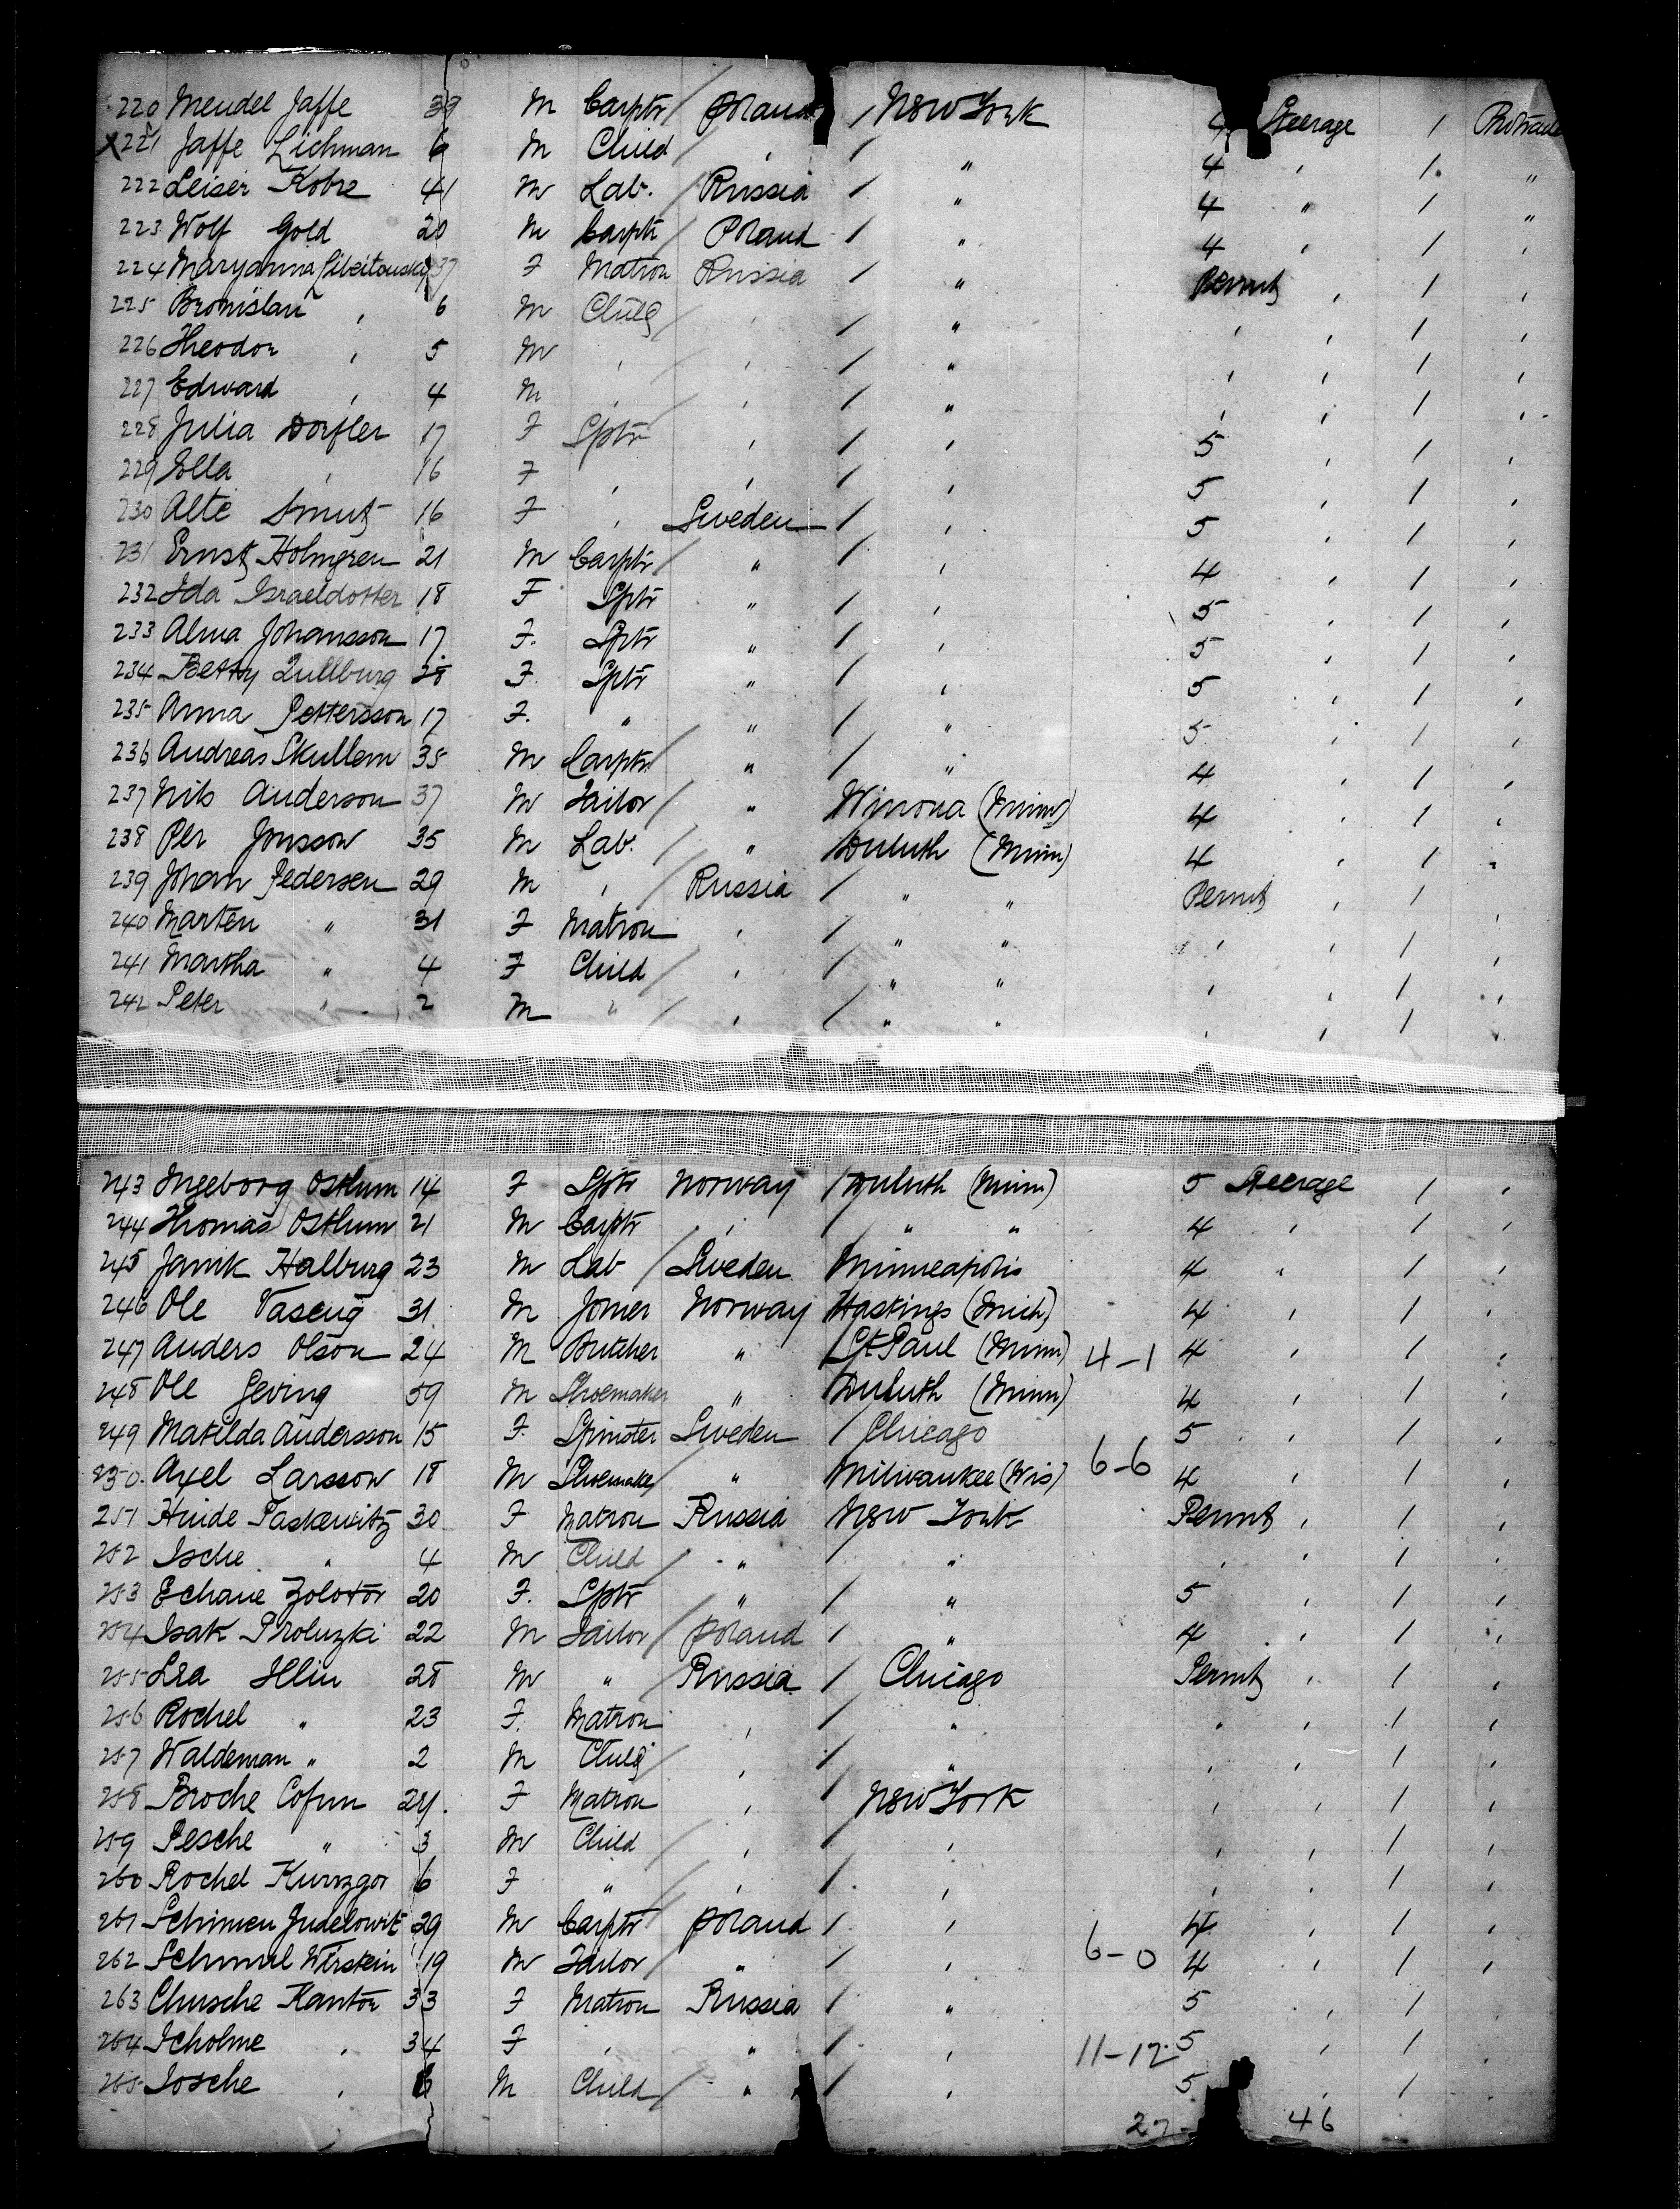 220 Mendel Jaffe 39 M Carptr / Poland / New York 4 Steerage / Protract
X221 Jaffe Lichman 6 M Child / , / " 4 , / "
222 Leiser Kobre 41 M Lab. / Russia / " 4 " / "
223 Wolf Gold 20 M Carptr / Poland / " 4 , / ,
224 Maryanna 37 F Matron Russia / " Permit , / ,
225 Bronislau , 6 M Child / , / " , , / ,
226 Theodor , 5 M , , / " , , / ,
227 Edward , 4 M , , / " , , / ,
228 Julia Dorfler 17 F Sptr , / , 5 , / ,
229 Ella , 16 F , , / , 5 , / ,
230 Alte Smut 16 F , Sweden / , 5 , / ,
231 Ernst Holmgren 21 M Carptr / " / , 4 , / ,
232 Ida Israeldotter 18 F Sptr " / , 5 , / ,
233 Alma Johansson 17 F. Sptr " / , 5 , / ,
234 Betty Lullburg 28 F. Sptr " / , 5 , / ,
235 Anna Pettersson 17 F. " " / " 5 , / ,
236 Andreas Skullem 35 M Carptr / " / " 4 , / ,
237 Nils Anderson 37 M Tailor / " Winona (Minn) 4 , / ,
238 Per Jonsson 35 M Lab. / " / Duluth (Minn) 4 , / ,
239 Johan Pedersen 29 M , / Russia / " " Permit , /
240 Marten " 31 F Matron , / " " , , / ,
241 Martha " 4 F Child / , / " " , , / ,
242 Peter " 2 M " / , / " " , , / ,
243 Ingeborg Osthum 14 F Sptr Norway / Duluth (Minn) 5 Steerage / ,
244 Thomas Osthum 21 M Carptr , / " " 4 , / ,
245 Janik Halburg 23 M Lab / Sweden Minneapolis 4 , / ,
246 Ole Vaseng 31 M Joiner Norway Hastings (Mich) 4 , / ,
247 Anders Olson 24 M Butcher " St Paul (Minn) 4-1 4 , / ,
248 Ole Geving 59 M Shoemaker " Duluth (Minn) 4 , / ,
249 Matilda Andersson 15 F. Spinster Sweden / Chicago 5 , / ,
250. Axel Larsson 18 M Shoemaker " Milwaukee (Wis) 6-6 4 , / ,
251 Huide Paskewitz 30 F Matron Russia New York Permit , / ,
252 Ische " 4 M Child / " " , , / ,
253 Echane Zolotor 20 F. Sptr " / " 5 , / ,
254 Isak Proluzki 22 M Tailor / Poland / " 4 , / ,
255 Lea Ilin 28 M " Russia / Chicago Permit , / ,
256 Rochel " 23 F. Matron , / " , , / ,
257 Waldeman " 2 M Child / , / " , , / ,
258 Broche Cofun 24. F Matron , / New York , , / ,
259 Pesche " 3 M Child / , / , , , / ,
260 Rochel Kurzgor 6 F " / , / , , , / ,
261 Schimen Judelowit 29 M Carptr Poland / , 4 , / ,
262 Schmul Werstein 19 M Tailor / " / , 6-0 4 , / ,
263 Chusche Kantor 33 F Matron Russia / " 5 , /
264 Scholme , 34 F , " / , 11-12 5 , / ,
265 Josche , 6 M Child / " / , 5 , /
27 46